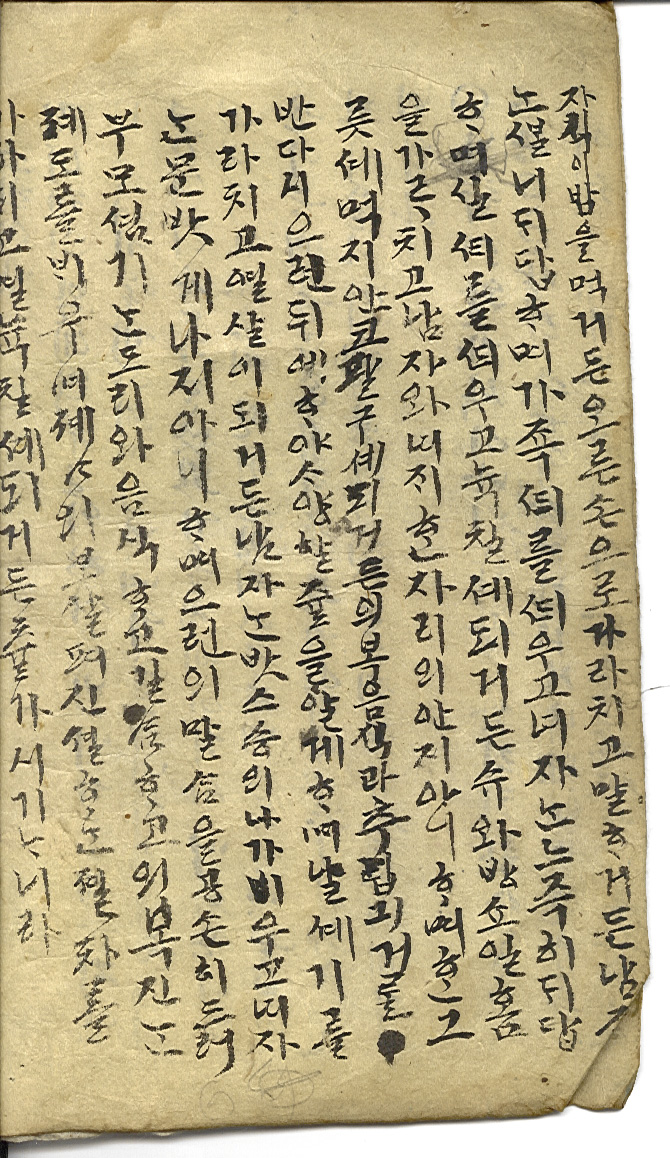 자식이밥을먹거든오른손으로가라치고말ᄒᆞ거든남ᄌᆞ
ᄂᆞᆫ셜니ᄃᆡ답ᄒᆞ며가쥭ᄯᅴ를ᄯᅴ우고녀자ᄂᆞᆫ느즉히ᄃᆡ답
ᄒᆞ며실ᄯᅴ를ᄯᅴ우고뉵칠셰되거든슈와방소일홈
을가ᄅᆞ치고남자와녀지ᄒᆞᆫ자리의안지아니ᄒᆞ며ᄒᆞᆫ그
릇셰먹지안코팔구셰되거든의복음식과츌립의거든
반다시으련뒤에ᄒᆞ야ᄉᆞ양할쥴을알게ᄒᆞ며날셰기를
가라치고열살이되거든남자ᄂᆞᆫ밧스승의나가비우고녀자
ᄂᆞᆫ문밧게나지아니ᄒᆞ며으련의말ᄉᆞᆷ을공손히드러
부모셤기ᄂᆞᆫ도리와음식ᄒᆞ고길ᄉᆞᆷᄒᆞ고의복진ᄂᆞᆫ
졔도를비우며졔ᄉᆞ의보살펴진셜ᄒᆞᄂᆞᆫ졀차를
고열뉵칠셰되거든츌가시기ᄂᆞ니라